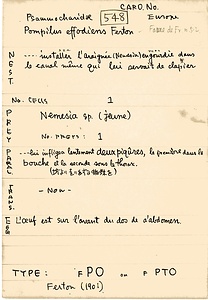 CARD. No.
Psammocharidae 548 Europe
Pompilus effodiens Ferton
NEST. --- installer l'araignée (Nemesia) engourdie dans
le canal même qui lui servait de clapier.
No. CELLS 1
PREY Nemesia sp. (jeune)
No. PREYS: 1
PARAL. ---lui infligea lentement deux piqûres, la première dans la
bouche et la seconde sous le thorax.
TRANS. - Non -
EGG L'œuf est sur l'avant du dos de l'abdomen.
TYPE: FPO ou F PTO
Ferton (1901)